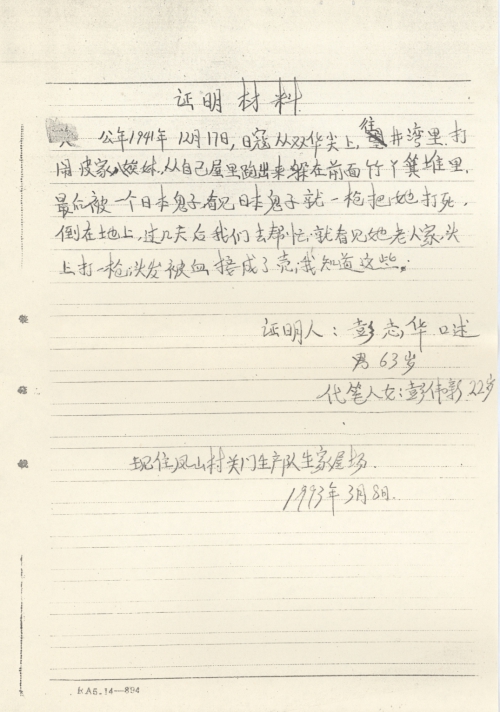 证明材料
公年1941年12月17日,日寇从双华尖上,井湾里.打
用皮家八娭毑,从自己屋里跑出来,躲在前面竹丫箕堆里,
最后被一个日本鬼子,看见日本鬼子就一枪把她打死,
倒在地上,过几天后我们去帮忙,就看见她老人家,头
上打一枪,头发被血搭成了壳,我知道这些.
证明人:彭志华口述
男63岁
代笔人女:彭伟新22岁
现住凤山村关门生产队生家屋场.
1993年3月8日.
HA6.14—894